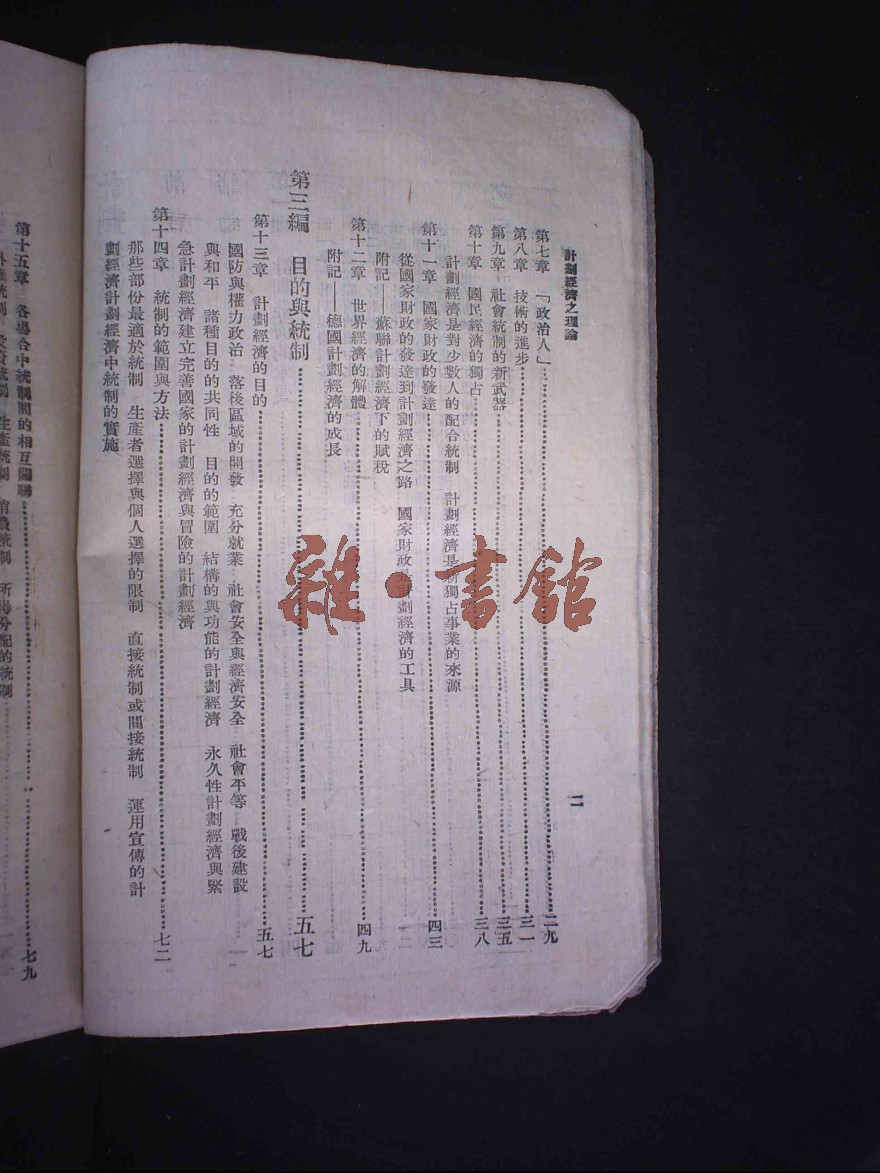 計劃經濟之理論
二
第七章 「政治人」……二九
第八章 技術的進步……三一
第九章 社會統制的新武器……三五
第十章 國民經濟的獨占……三八
計劃經濟是對少數人的配合統制 計劃經濟是新獨占事業的來源
第十一章 國家財政的發達……四三
從國家財政的發達到計劃經濟之路 國家財政是計劃經濟的工具
附記——蘇聯計劃經濟下的賦稅
第十二章 世界經濟的解體……四九
附記——德國計劃經濟的成長
第三編 目的與統制……五七
第十三章 計劃經濟的目的……五七
國防與權力政治 落後區域的開發 充分就業 社會安全與經濟安全 社會平等 戰後建設
與和平 諸種目的的共同性 目的的範圍 結構的與功能的計劃經濟 永久性計劃經濟與緊
急計劃經濟建立完善國家的計劃經濟與冒險的計劃經濟
第十四章 統制的範圍與方法……七二
那些部份最適於統制 生產者選擇與個人選擇的限制 直接統制或間接統制 運用宣傳的計
劃經濟計劃經濟中統制的實施
第十五章 各場合中統制間的相互關聯……七九
統制 投資統制 生產統制 消費統制 所得分配的統制
雜·書館